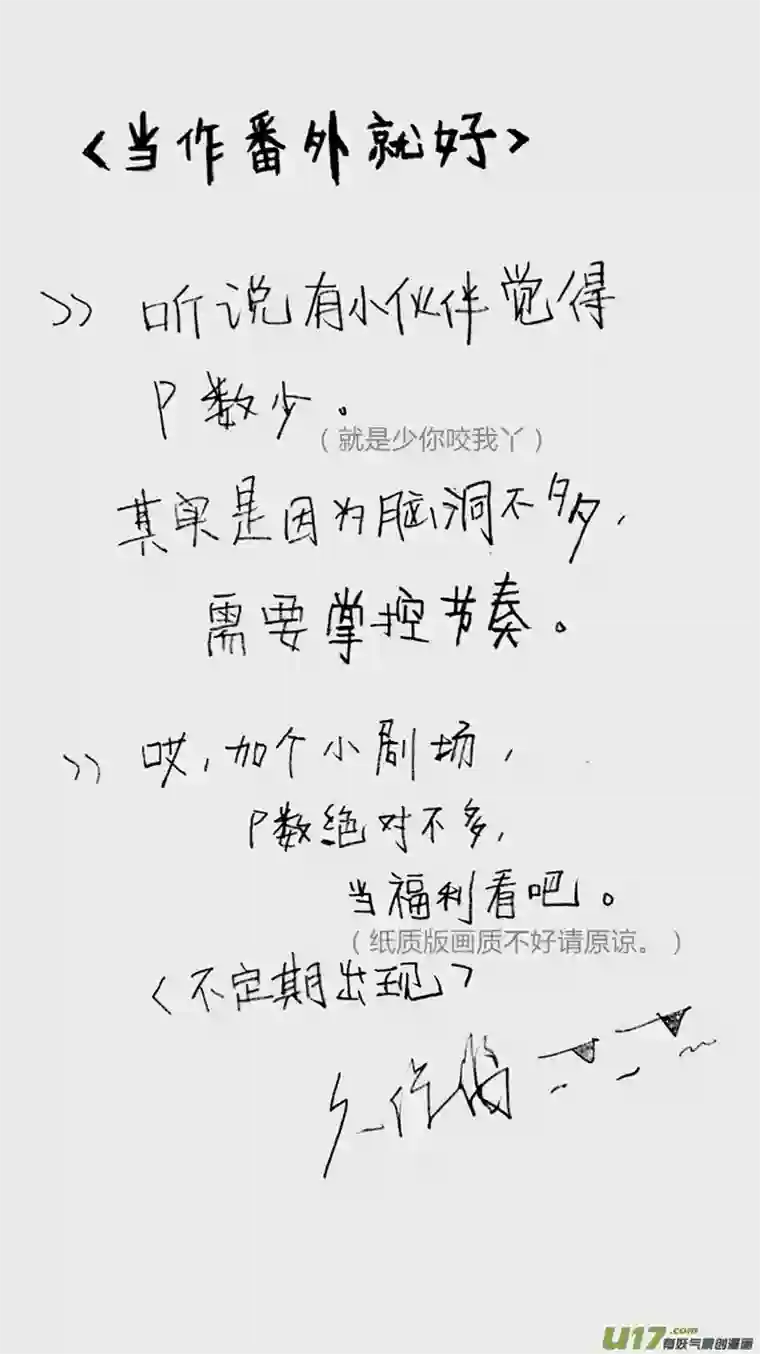 <当作番外就好>
>> 听说有小伙伴觉得
P数少。
(就是少你咬我丫)
其实是因为脑洞不多,
需要掌控节奏。
>> 哎,加个小剧场,
P数绝对不多,
当福利看吧。
(纸质版画质不好请原谅。)
<不定期出现>
U17.com
有妖气原创漫画